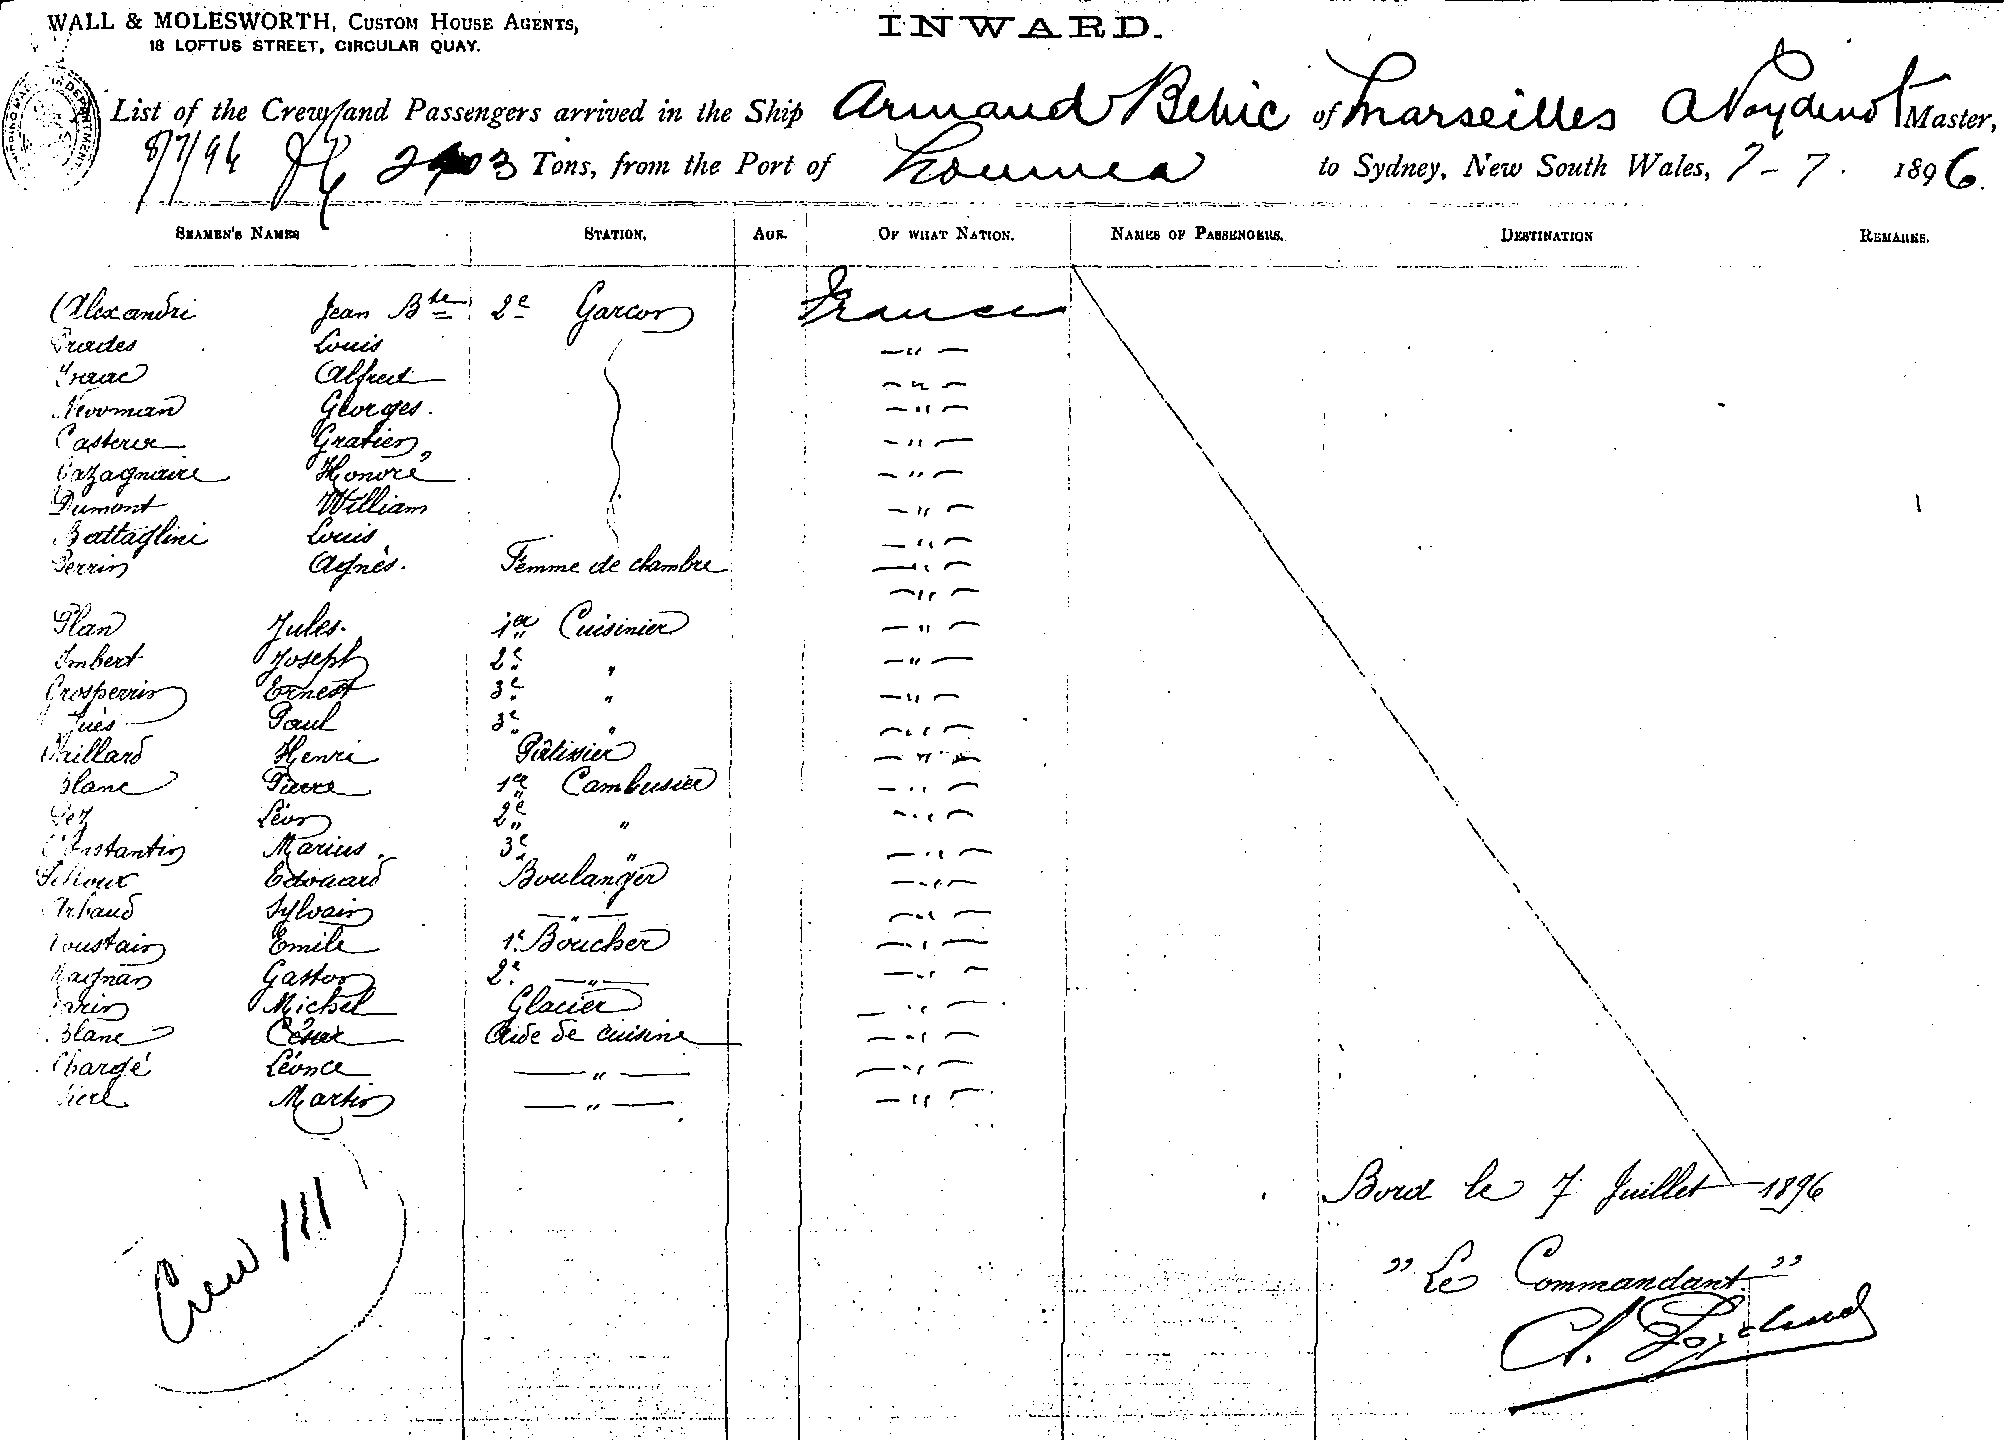 WALL & MOLESWORTH, CUSTOM HOUSE AGENTS,
18 LOFTUS STREET, CIRCULAR QUAY.
INWARD.
List of the Crew and Passengers arrived in the Ship Armand Behic of Marseilles A Poydenot Master,
8/7/96 2403 Tons, from the Port of Noumea to Sydney, New South Wales, 7-7. 1896.
SEAMEN'S NAMES STATION. AGE. OF WHAT NATION. NAMES OF PASSENGERS. DESTINATION REMARKS.
Alexandri Jean Bte 2e Garcon France
Prades Louis —"—
Isaac Alfred —"—
Nooman Georges. —"—
Casterer Gratien —"—
Cazagnaire Honoré —"—
Dumont William —"—
Battaglini Louis —"—
Perrin Agnès. Femme de chambre —"—
—"—
Plan Jules. 1er Cuisinier —"—
Imbert Joseph 2e " —"—
Grosperrin Ernest 3e " —"—
Juès Paul 3e " —"—
Vaillard Henri Pâtissier —"—
Blanc Pierre 1er Cambusier —"—
Léon 2e " —"—
Constantin Marius. 3e " —"—
Edouard Boulanger —"—
Arbaud Sylvain —"— —"—
Toustain Emile 1e Boucher —"—
Magnan Gaston 2e —"— —"—
Michel Glacier —"—
Blanc César Aide de cuisine —"—
Chargé Léonce —"— —"—
Martin —"— —"—
Crew 111
Bord le 7 Juillet 1896
" Le Commandant "
A. Poydenot